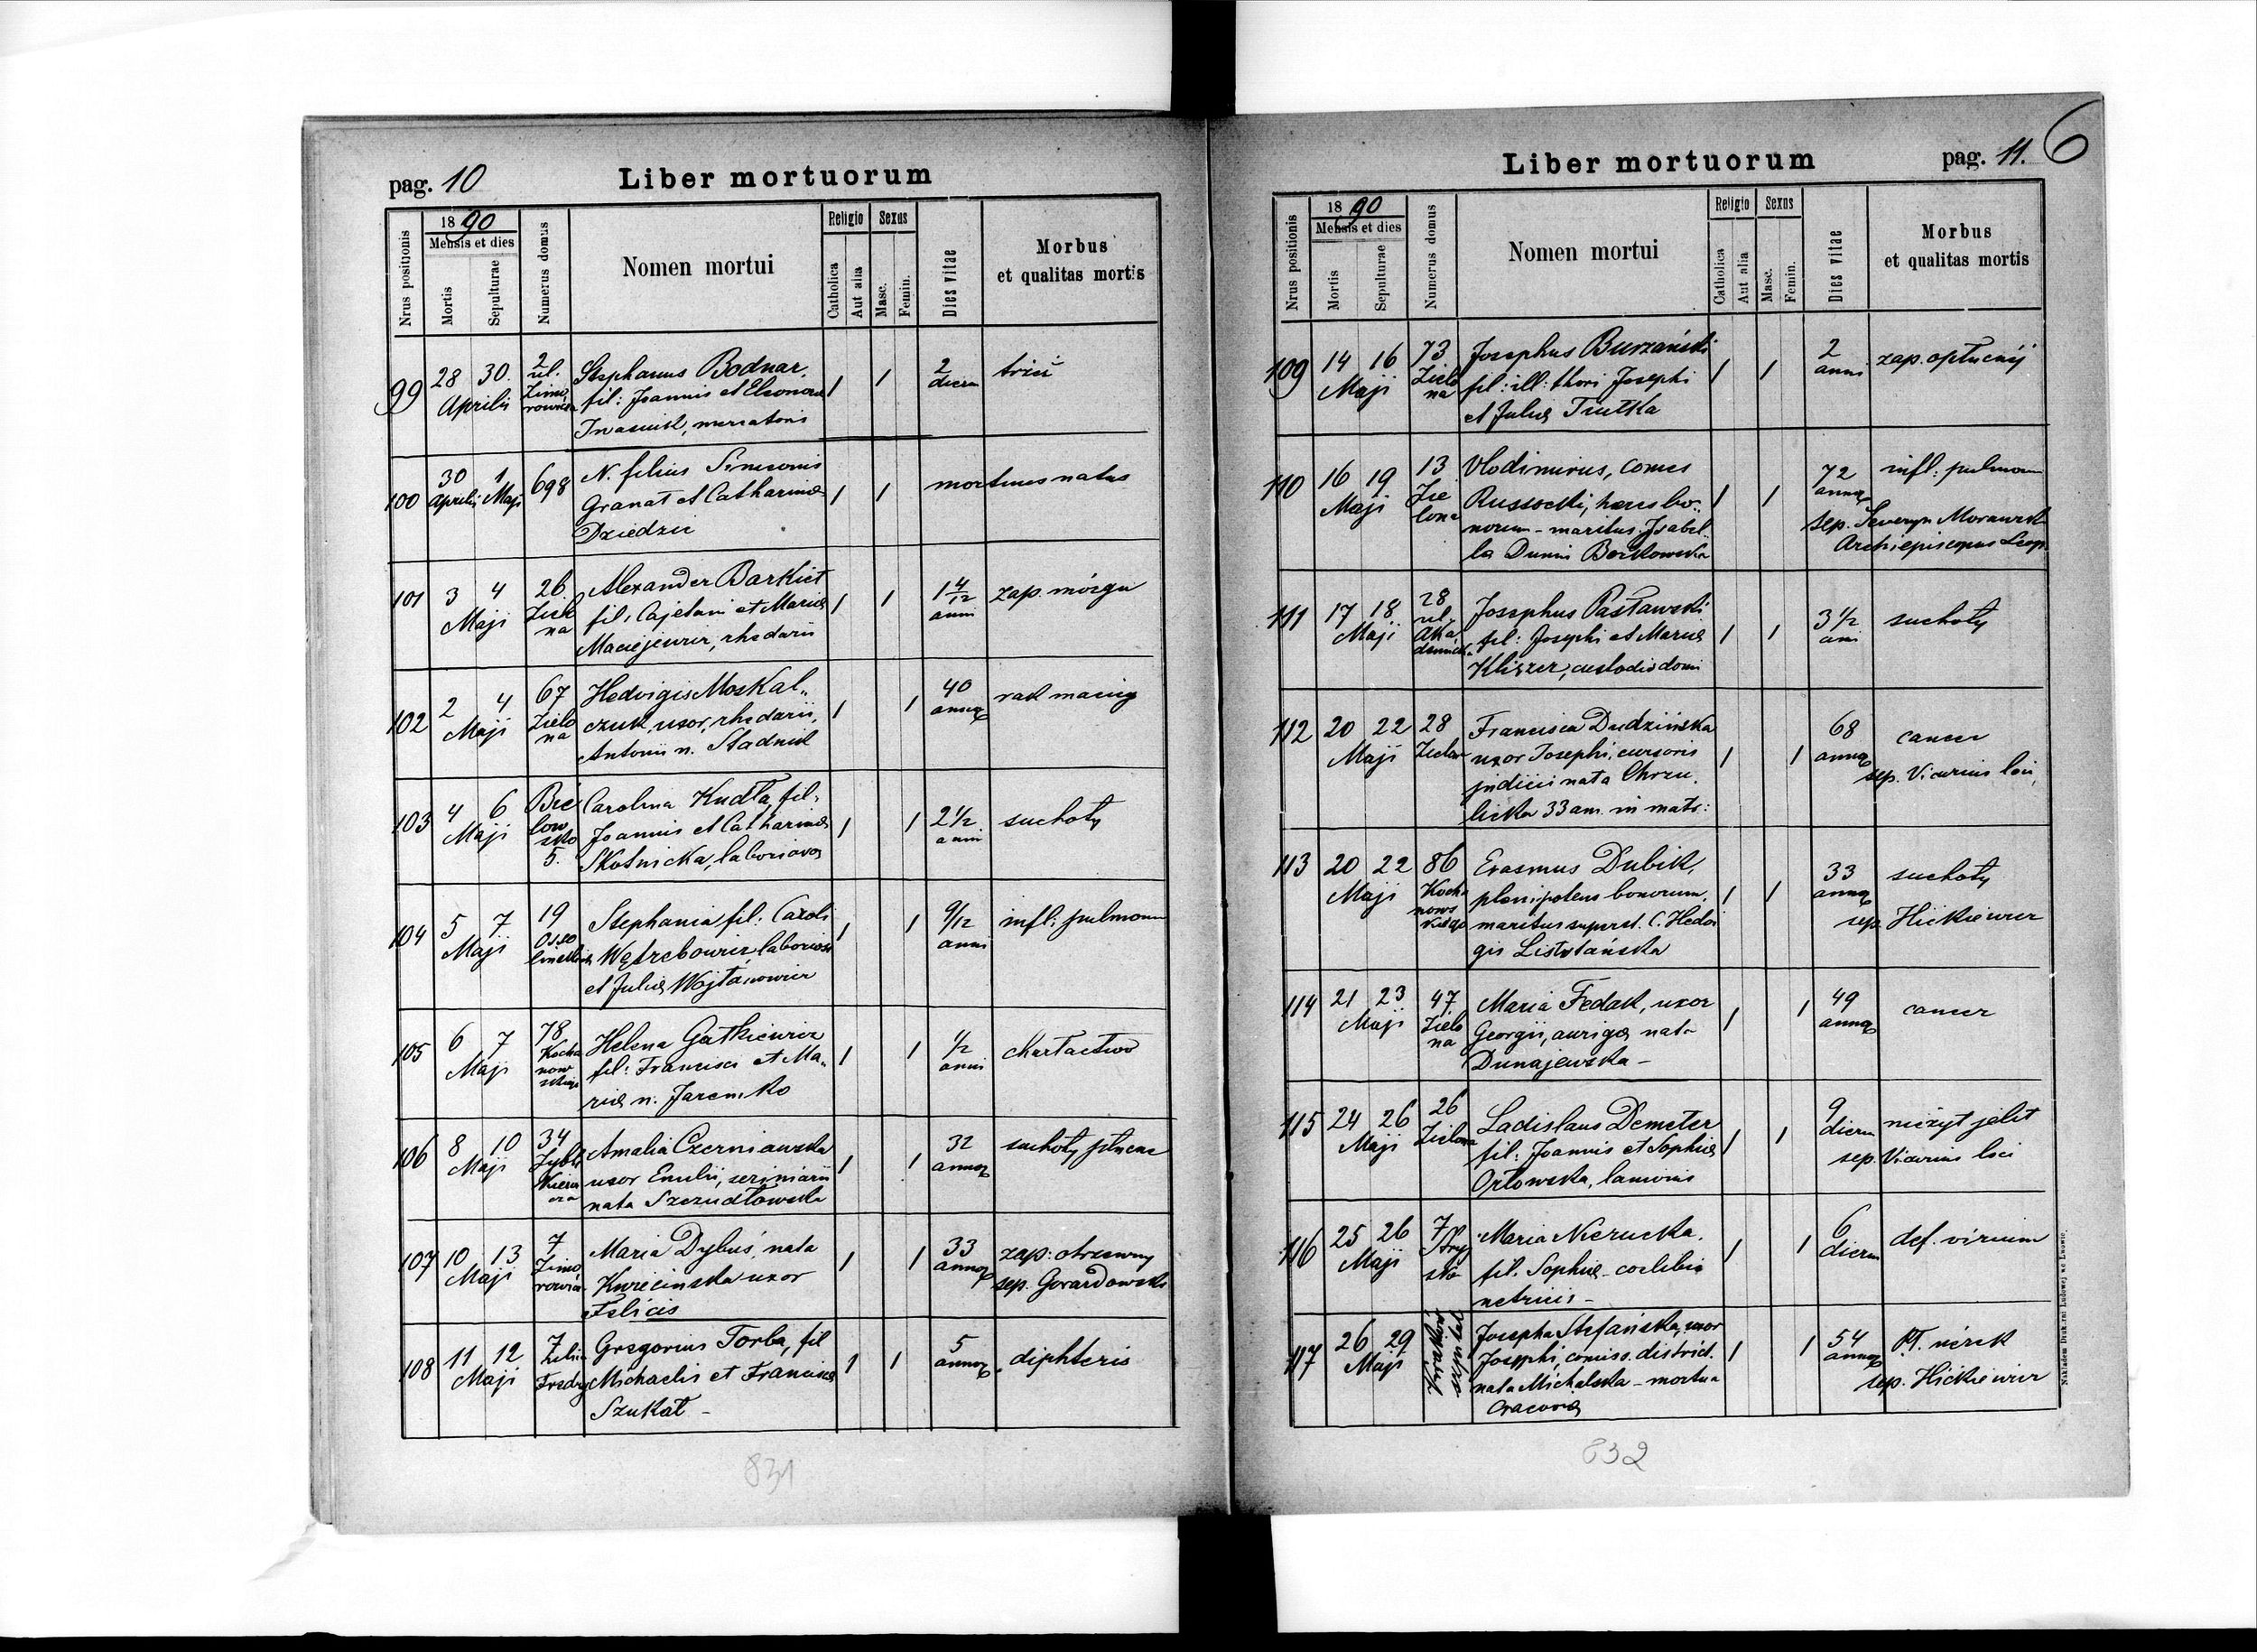 pag. 10
Liber mortuorum
Nrus positionis
1890
Mensis et dies
Mortis
Sepulturae
Numerus domus
Nomen mortui
Religio
Catholica
Aut alia
Sexus
Masc.
Femin.
Dies vitae
Morbus
et qualitas mortis
99 28 30. Aprilis
2 ul. Zimo rowicza
Stephanus Bodnar,
fil: Joannis et Eleonora
Iwasiuk, mercatoris
1 1
2 dierum
100 30 Aprilis 1 Maji
698
N. filius Simeonis
Granat et Catharinae
Dziedzic
1 1
mortuus natus
101 3 4 Maji
26. Zielo na
Alexander Barkiet
fil: Cajetani et Mariae
Maciejewicz, rhedarii
1 1
1 4/12 anni
zap. mózgu
102 2 4 Maji
67 Zielo na
Hedvigis Moskal„
czuk, uxor, rhedarii,
Antonii n. Stadnik
1 1
40 annor
rak macicy
103 4 6 Maji
Bie low sko 5.
Carolina Kudła, fil.
Joannis et Catharinae
Skotnicka, laboriosa
1 1
2 1/2 anni
suchoty
104 5 7 Maji
19 Osso lińskich
Stephania fil: Caroli
Wętrebowicz laboriosi
et Juliae Wojtanowicz
1 1
9/12 anni
infl: pulmonum
105 6 7 Maji
78 Kocha now skiego
Helena Gatkiewicz
fil: Francisci et Ma„
riae n. Jaremko
1 1
1/2 anni
charłactwo
106 8 10 Maji
34
Amalia Czerniawska
uxor Emilii, scriniarii
nata Szczudłowska
1 1
32 annor
suchoty płucne
107 10 13 Maji
7 Zimo rowicz
Maria Dybuś, nata
Kwiecinska uxor
Felicis
1 1
33 annor
zap: otrzewny
sep. Gorardowski
108 11 12 Maji
7
Fredry
Gregorius Torba, fil
Michaelis et Francisca
Szukat –
1 1
5 annor
diphteris
831
Liber mortuorum
pag. 11.
6
Nrus positionis
1890
Mensis et dies
Mortis
Sepulturae
Numerus domus
Nomen mortui
Religio
Catholica
Aut alia
Sexus
Masc.
Femin.
Dies vitae
Morbus
et qualitas mortis
109 14 16 Maji
73 Zielo na
Josephus Burzański
fil: ill: thori Josephi
et Juliae Trutka
1 1
2 anni
zap. opłucnej
110 16 19 Maji
13 Zie lona
Vlodimirus, comes
Russocki, haeres bo„
norum – maritus Isabel„
la Dunin Borkowska
1 1
72 annor
infl: pulmonum
sep. Severyn Morawski
Archiepiscopus Leop.
111 17 18 Maji
28 ul. Aka demicka
Josephus Pasławski
fil: Josephi et Mariae
Kliszer, custodis domi
1 1
3 1/2 ani
suchoty
112 20 22 Maji
28 Zielona
Francisca Dudzińska
uxor Josephi, cursoris
judicii nata Chrzu„
licka 33 an. in matr:
1 1
68 annor
cancer
sep. Vicarius loci
113 20 22 Maji
86 Kocha nows kiego
Erasmus Dubik,
plenipotens bonorum,
maritus superst. C. Hedvi
gis Listolańska
1 1
33 annor
suchoty
sep. Hickiewicz
114 21 23 Maji
47 Zielo na
Maria Fedak, uxor
Georgii, aurigae, nata
Dunajewska –
1 1
49 annor
cancer
115 24 26 Maji
26 Zielona
Ladislaus Demeter
fil: Joannis et Sophiae
Orłowska, lanionis
1 1
9 dierum
nieżyt jelit
sep. Vicarius loci
116 25 26 Maji
7 Stryj ska
Maria Nierucka,
fil. Sophiae – coelibis
netricis –
1 1
6 dierum
def. virium
117 26 29 Maji
Kraków szpital
Josepha Stefańska, uxor
Josephi, comiss. district.
nata Michalska – mortua
Cracoviae
1 1
54 annor
sep. Hickiewicz
Nakładem Drukarni Ludowej we Lwowie.
832